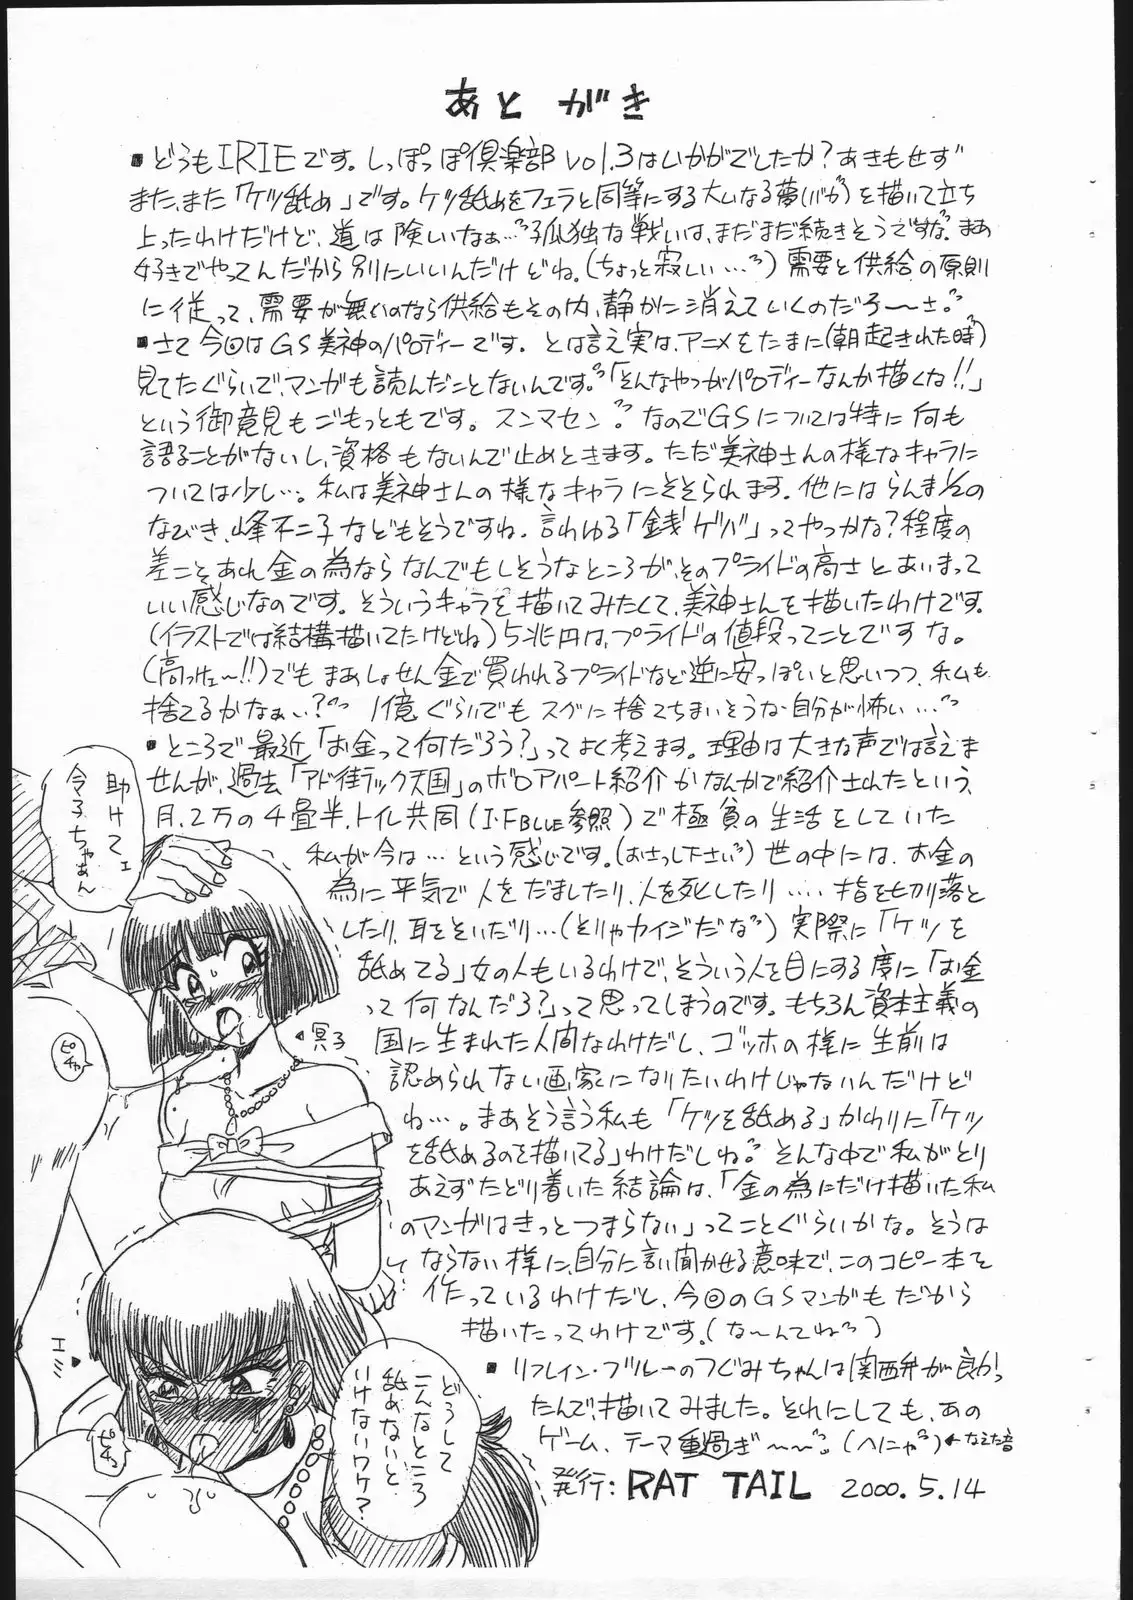 あとがき
▪どうもIRIEです。しっぽっぽ倶楽部vol.3はいかがでしたか?あきもせず
また、また「ケツ舐め」です。ケツ舐めをフェラと同等にする大いなる夢(バカ)を描いて立ち
上ったわけだけど、道は険しいなぁ…孤独な戦いは、まだまだ続きそうですな。まあ
好きでやってんだから別にいいんだけどね。(ちょっと寂しい…)需要と供給の原則
に従って、需要が無いのなら供給もその内、静かに消えていくのだろ〜さ。
▪さて今回はGS美神のパロディーです。とは言え実は、アニメをたまに(朝起きれた時)
見てたぐらいで、マンガも読んだことないんです。「そんなやつがパロディーなんか描くね!!」
という御意見もごもっともです。スンマセン。なのでGSについては特に何も
語ることがないし、資格もないんで止めときます。ただ美神さんの様なキャラに
ついては少し…。私は美神さんの様なキャラにそそられます。他にはらんま1/2の
なびき、峰不二子などもそうですね。言わゆる「銭ゲバ」ってやつかな?程度の
差こそあれ金の為ならなんでもしそうなところが、そのプライドの高さとあいまって
いい感じなのです。そういうキャラを描いてみたくて、美神さんを描いたわけです。
(イラストでは結構描いてたけどね)5兆円は、プライドの値段ってことですな。
(高っけェ〜!!)でもまあしょせん金で買われるプライドなど逆に安っぽいと思いつつ、私も
捨てるかなぁ…?1億ぐらいでもスグに捨てちまいそうな自分が怖い…
▪ところで最近「お金って何だろう?」ってよく考えます。理由は大きな声では言えま
せんが、過去「アド街ック天国」のボロアパート紹介かなんかで紹介されたという、
月、2万の4畳半、トイレ共同(I・F BLUE参照)で極貧の生活をしていた
私が今は…という感じです。(おさっし下さい)世の中には、お金の
為に平気で人をだましたり、人を死したり…指を切り落と
したり、耳をそいだり…(そりゃカイジだな)実際に「ケツを
舐めてる」女の人もいるわけで、そういう人を目にする度に「お金
って何なんだろ?」って思ってしまうのです。もちろん資本主義の
国に生まれた人間なわけだし、ゴッホの様に生前は
認められない画家になりたいわけじゃないんだけど
ね…。まあそう言う私も「ケツを舐める」かわりに「ケツ
を舐めるのを描いてる」わけだしね。そんな中で私がとり
あえずたどり着いた結論は、「金の為にだけ描いた私
のマンガはきっとつまらない」ってことぐらいかな。そうは
ならない様に、自分に言い聞かせる意味で、このコピー本を
作っているわけだし、今回のGSマンガもだから
描いたってわけです。(な〜んてね)
▪リフレイン・ブルーのつぐみちゃんは関西弁が良かっ
たんで、描いてみました。それにしても、あの
ゲーム、テーマ重過ぎ〜〜。(へにゃ)←なえた音
発行:RAT TAIL 2000.5.14
助けてェ
令子ちゃあん
ピチャ
◂冥子
エミ♥
ピチャ
どうして
こんなところ
舐めないと
いけないワケ?